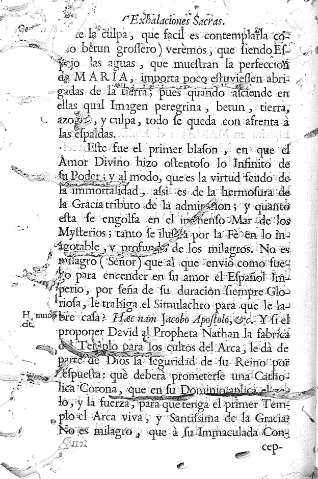 Exhalaciones Sacras.
te la culpa, que facil es contemplarla co-
mo betun grossero) verèmos, que siendo Es-
pejo las aguas, que muestran la perfeccion
de MARIA, importa poco estuviessen abri-
gadas de la tierra; pues quando atiende en
ellas qual Imagen peregrina, betun, tierra,
azogue, y culpa, todo se queda con afrenta à
las espaldas.
Este fue el primer blason, en que el
Amor Divino hizo ostentoso lo Infinito de
su Poder; y al modo, que es la virtud feudo de
la immortalidad, assi es de la hermosura de
la Gracia tributo de la admiracion; y quanto
esta se engolfa en el immenso Mar de los
Mysterios; tanto se ilustra por la Fè en lo in-
agotable, y profundo de los milagros. No es
milagro (Señor) que al que envió como fue-
go para encender en su amor el Español Im-
perio, por seña de su duracion siempre Glo-
riosa, le trahiga el Simulachro para que le la-
bre casa? Hac nam Jacobo Apostolo, &c. Y si el
proponer David al Propheta Nathan la fabrica
del Templo para los cultos del Arca, le dà de
parte de Dios la seguridad de su Reino por
respuesta: què deberà prometerse una Catho-
lica Corona, que en su Dominio aplica el ze-
lo, y la fuerza, para que tenga el primer Tem-
plo el Arca viva, y Santissima de la Gracia?
No es milagro, que à su Immaculada Con-
cep-